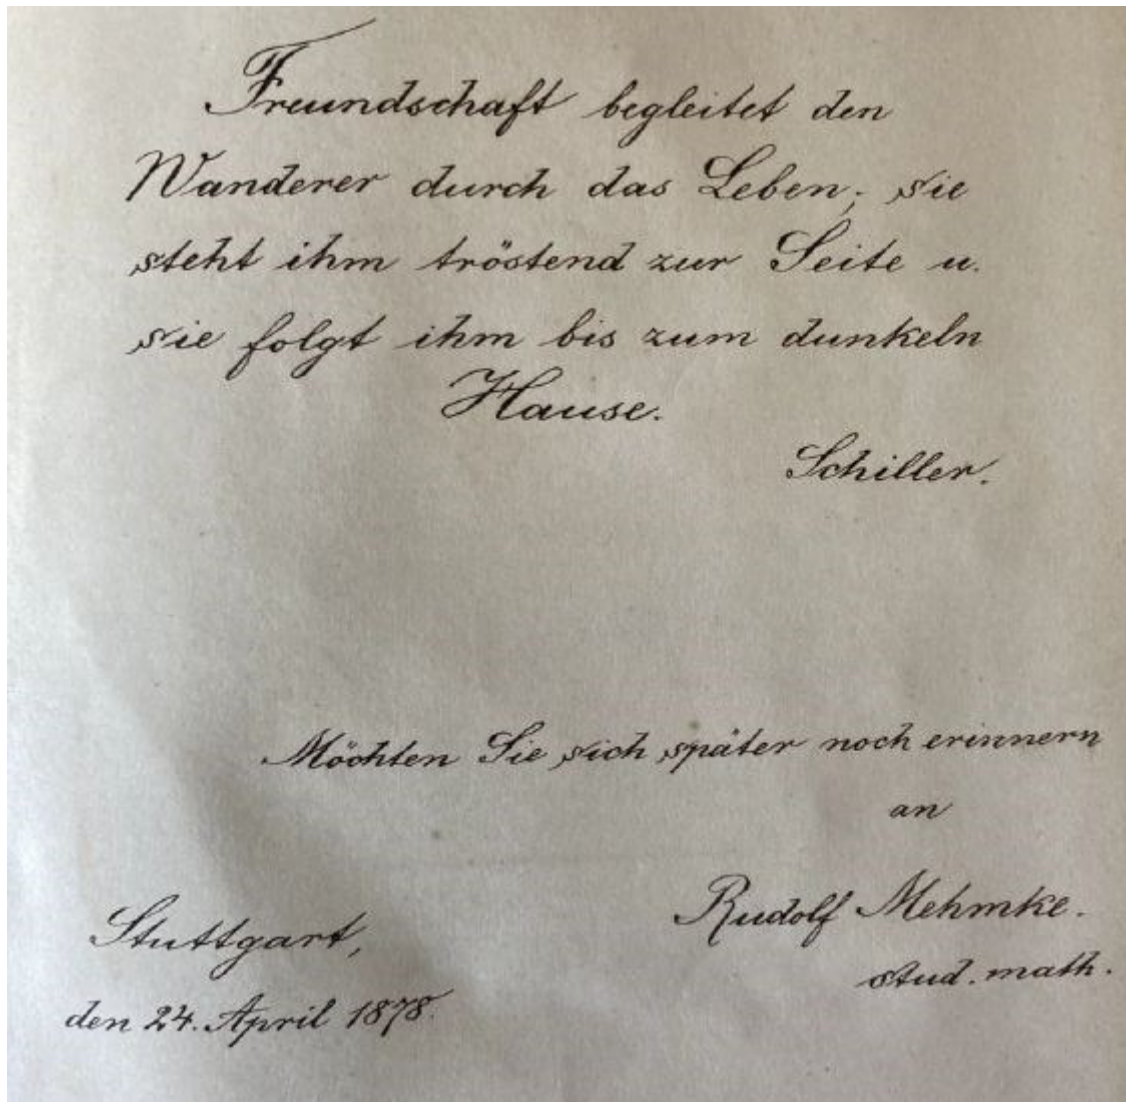 Freundschaft begleitet den
Wanderer durch das Leben; sie
steht ihm tröstend zur Seite u.
sie folgt ihm bis zum dunkeln
Hause.
Schiller.
Möchten Sie sich später noch erinnern
an
Rudolf Mehmke.
stud. math.
Stuttgart,
den 24. April 1878.